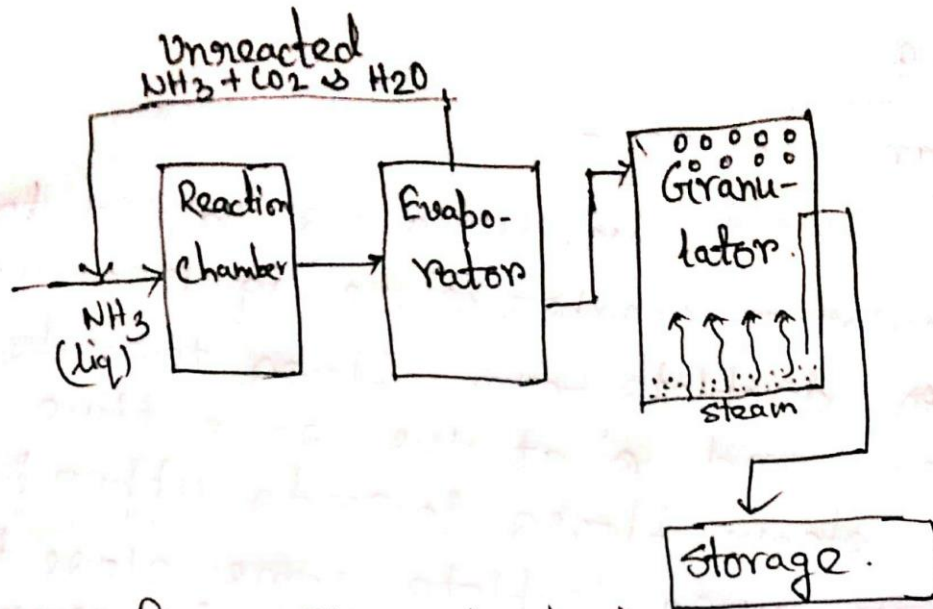 Unreacted
NH3 + CO2 & H2O
Reaction
Chamber
Evapo-
rator
Granu-
lator.
NH3
(liq)
steam
Storage.